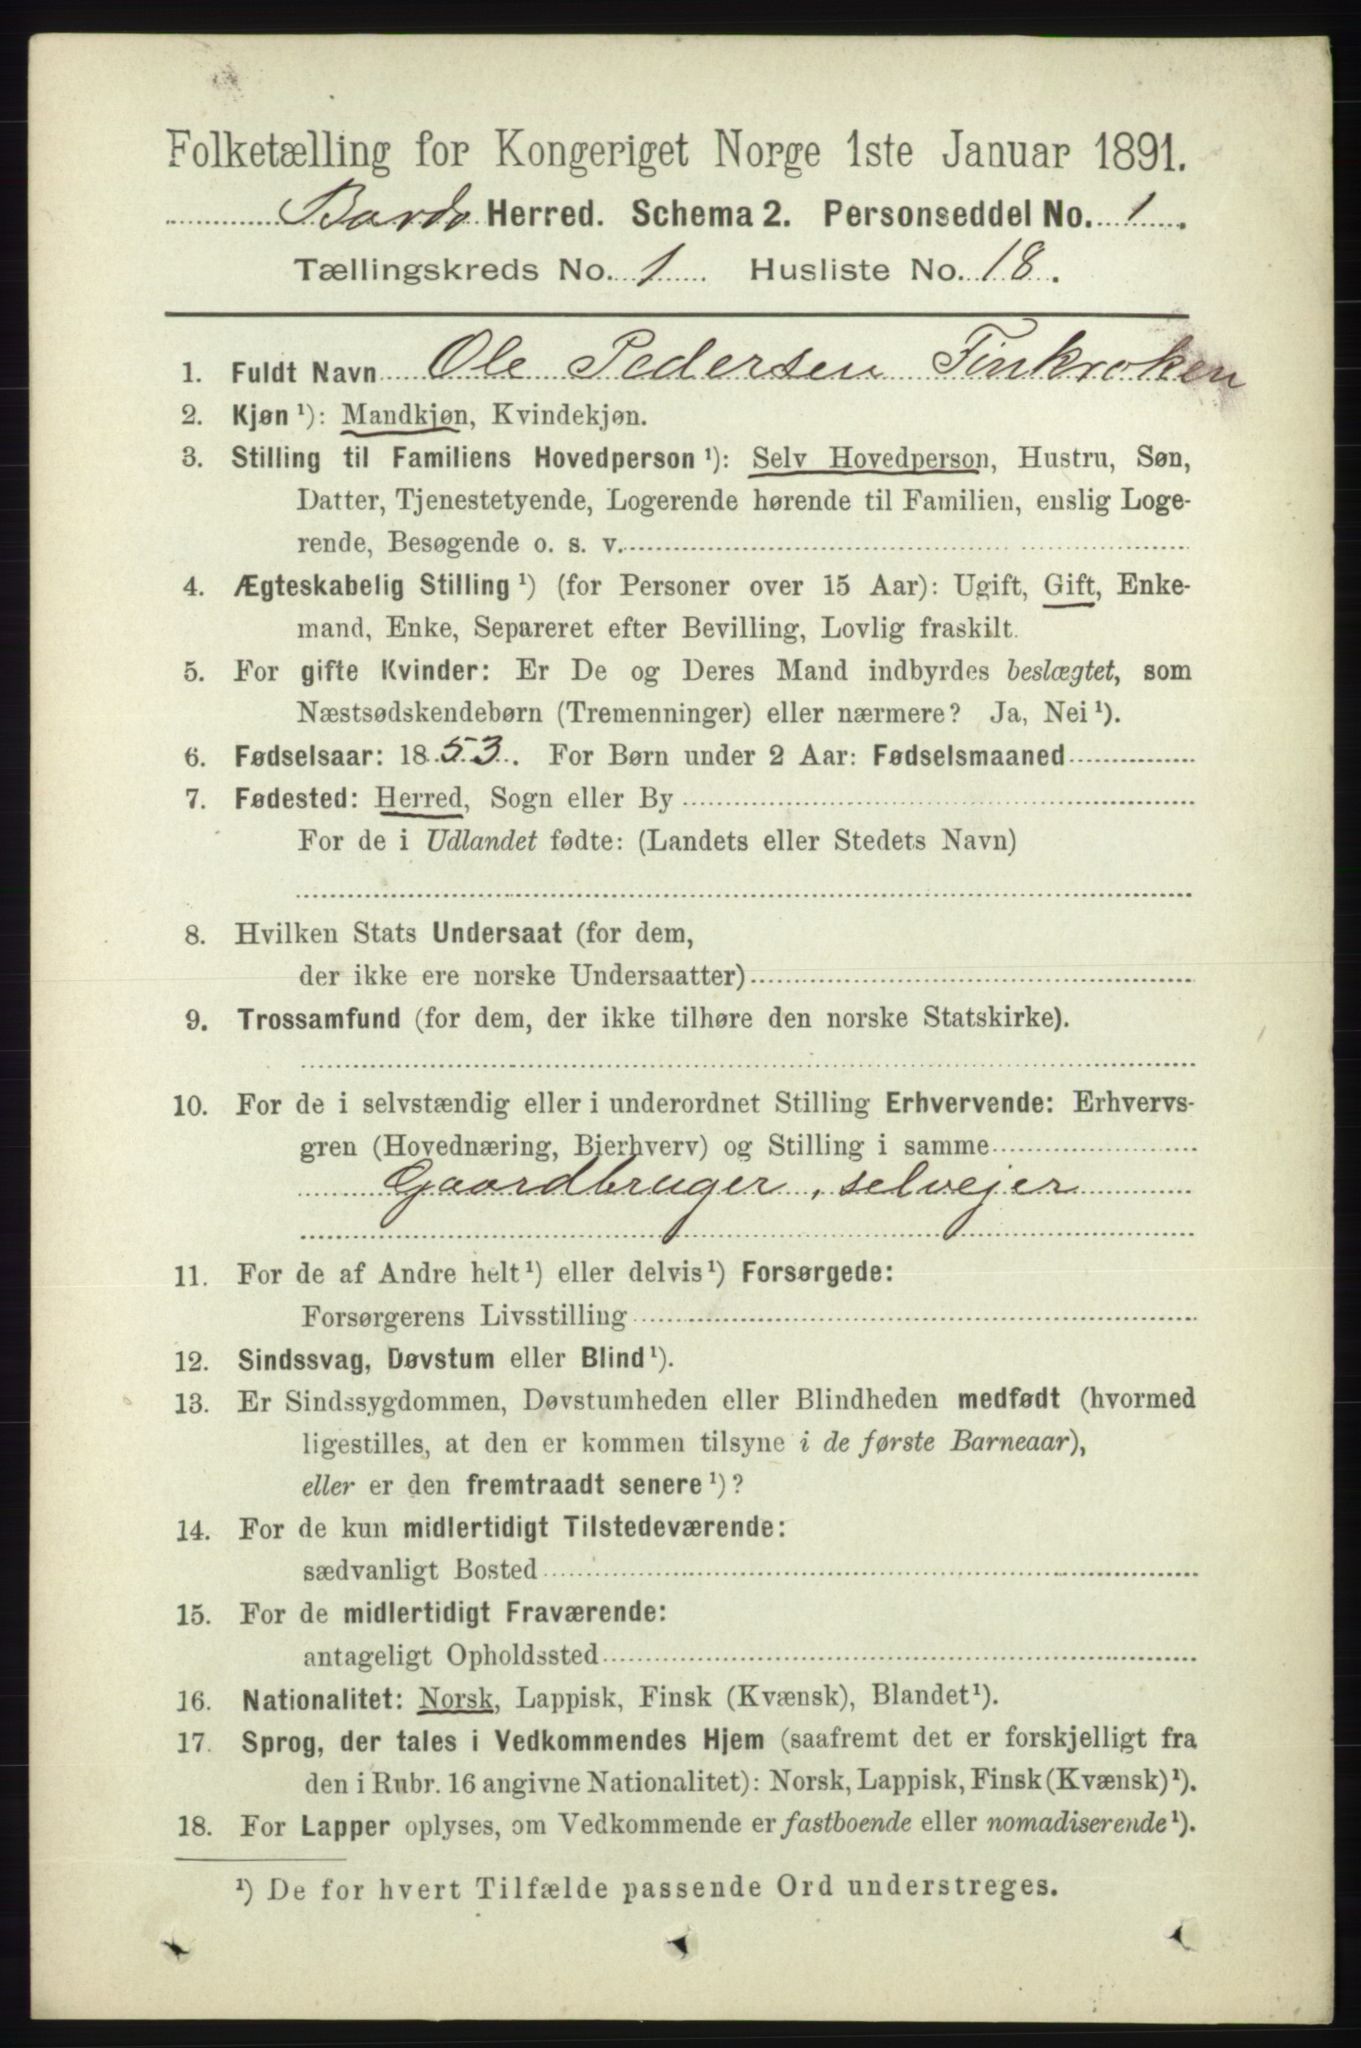 Folketælling for Kongeriget Norge 1ste Januar 1891.
Bardo Herred. Schema 2. Personseddel No. 1.
Tællingskreds No. 1 Husliste No. 18.
1. Fuldt Navn Ole Pedersen Finkroken
2. Kjøn ¹): Mandkjøn, Kvindekjøn.
3. Stilling til Familiens Hovedperson ¹): Selv Hovedperson, Hustru, Søn,
Datter, Tjenestetyende, Logerende hørende til Familien, enslig Loge-
rende, Besøgende o. s. v.
4. Ægteskabelig Stilling ¹) (for Personer over 15 Aar): Ugift, Gift, Enke-
mand, Enke, Separeret efter Bevilling, Lovlig fraskilt.
5. For gifte Kvinder: Er De og Deres Mand indbyrdes beslægtet, som
Næstsødskendebørn (Tremenninger) eller nærmere? Ja, Nei ¹).
6. Fødselsaar: 1853. For Børn under 2 Aar: Fødselsmaaned
7. Fødested: Herred, Sogn eller By
For de i Udlandet fødte: (Landets eller Stedets Navn)
8. Hvilken Stats Undersaat (for dem,
der ikke ere norske Undersaatter)
9. Trossamfund (for dem, der ikke tilhøre den norske Statskirke).
10. For de i selvstændig eller i underordnet Stilling Erhvervende: Erhvervs-
gren (Hovednæring, Bierhverv) og Stilling i samme
Gaardbruger, selvejer
11. For de af Andre helt ¹) eller delvis ¹) Forsørgede:
Forsørgerens Livsstilling
12. Sindssvag, Døvstum eller Blind ¹).
13. Er Sindssygdommen, Døvstumheden eller Blindheden medfødt (hvormed
ligestilles, at den er kommen tilsyne i de første Barneaar),
eller er den fremtraadt senere ¹)?
14. For de kun midlertidigt Tilstedeværende:
sædvanligt Bosted
15. For de midlertidigt Fraværende:
antageligt Opholdssted
16. Nationalitet: Norsk, Lappisk, Finsk (Kvænsk), Blandet ¹).
17. Sprog, der tales i Vedkommendes Hjem (saafremt det er forskjelligt fra
den i Rubr. 16 angivne Nationalitet): Norsk, Lappisk, Finsk (Kvænsk) ¹).
18. For Lapper oplyses, om Vedkommende er fastboende eller nomadiserende ¹).
¹) De for hvert Tilfælde passende Ord understreges.